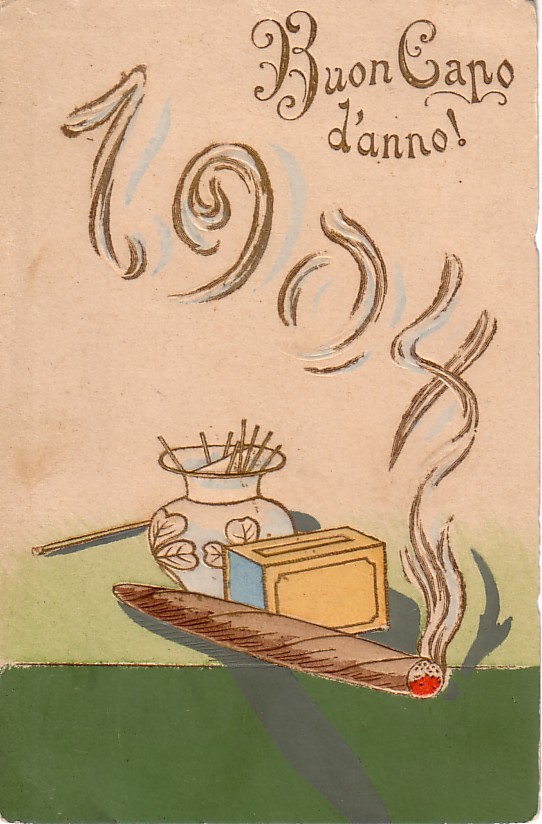 Buon Capo
d'anno!
1904